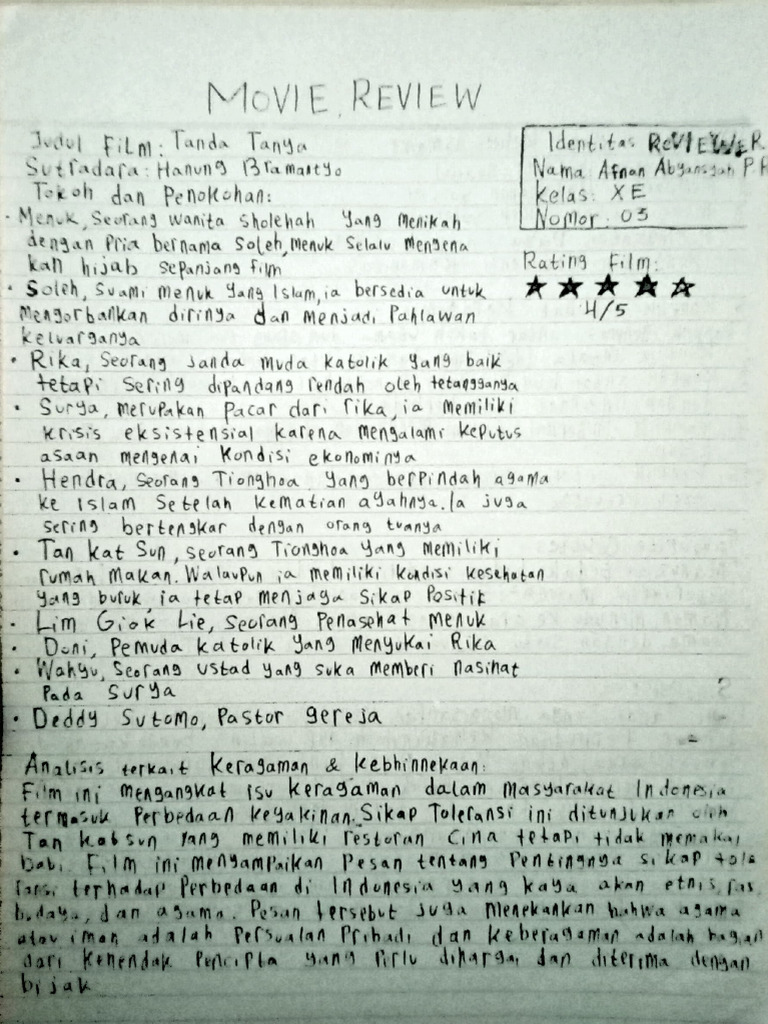 MOVIE REVIEW
Judul Film: Tanda Tanya
Sutradara: Hanung Bramantyo
Tokoh dan Penokohan:
Identitas REVIEWER
Nama Afnan Abyansyah P.
Kelas: XE
Nomor: 03
Rating Film:
4/5
• Menuk, Seorang wanita sholehah yang menikah
dengan Pria bernama Soleh, Menuk Selalu mengena
kan hijab sepanjang film
• Soleh, Suami menuk yang Islam, ia bersedia untuk
Mengorbankan dirinya dan menjadi Pahlawan
keluarganya
• Rika, Seorang Janda muda katolik yang baik
tetapi Sering dipandang rendah oleh tetangganya
• Surya, merupakan Pacar dari rika, ia memiliki
krisis eksistensial karena mengalami keputus
asaan mengenai kondisi ekonominya
• Hendra, Seorang Tionghoa yang berpindah agama
ke Islam Setelah kematian ayahnya. Ia juga
sering bertengkar dengan orang tuanya
• Tan kat Sun, seorang Tionghoa yang memiliki
rumah makan. Walaupun ia memiliki kondisi kesehatan
yang buruk, ia tetap menjaga Sikap Positif
• Lim Giok Lie, Seorang Penasehat menuk
• Doni, Pemuda katolik yang Menyukai Rika
• Wahyu, Seorang ustad yang suka memberi nasihat
Pada Surya
• Deddy Sutomo, Pastor gereja
Analisis terkait keragaman & kebhinnekaan:
Film ini mengangkat isu keragaman dalam masyarakat Indonesia
termasuk Perbedaan keyakinan. Sikap Toleransi ini ditunjukan oleh
Tan kat sun yang memiliki restoran Cina tetapi tidak memakai
babi. Film ini menyampaikan Pesan tentang Pentingnya sikap tole
ransi terhadap Perbedaan di Indonesia yang kaya akan etnis, ras
budaya, dan agama. Pesan tersebut Juga Menekankan bahwa agama
atau iman adalah Persoalan Pribadi dan keberagaman adalah bagian
dari kehendak Pencipta yang Perlu dihargai dan diterima dengan
bijak